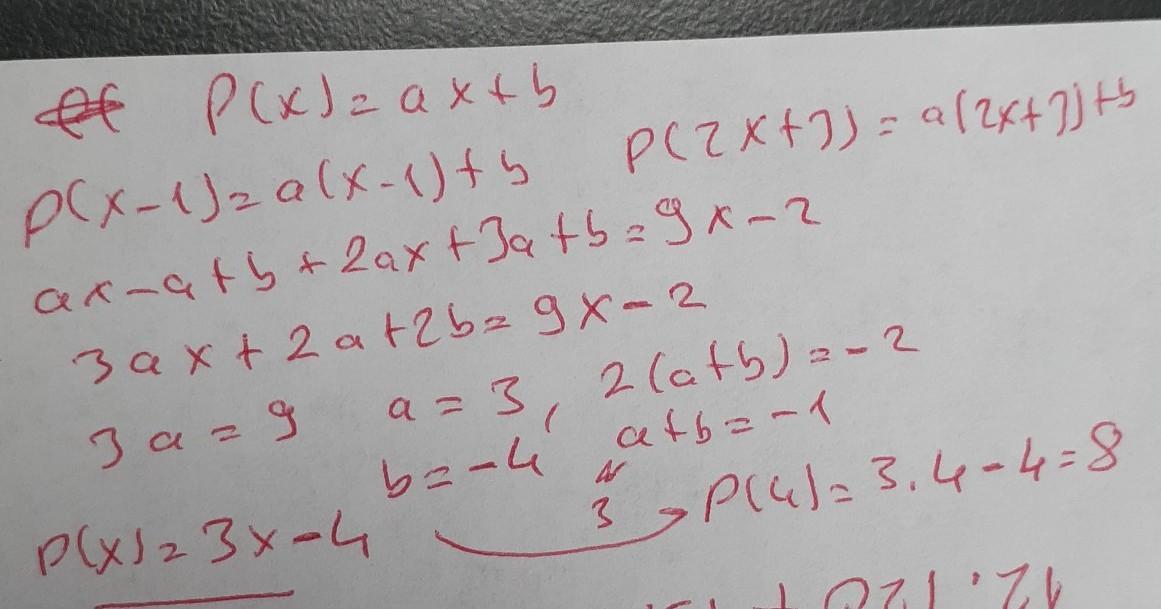 P(x) = ax + b
P(x-1) = a(x-1) + b P(2x+3) = a(2x+3) + b
ax - a + b + 2ax + 3a + b = 9x - 2
3ax + 2a + 2b = 9x - 2
3a = 9 a = 3, 2(a+b) = -2
b = -4 a+b = -1
3
P(x) = 3x - 4 P(4) = 3.4 - 4 = 8